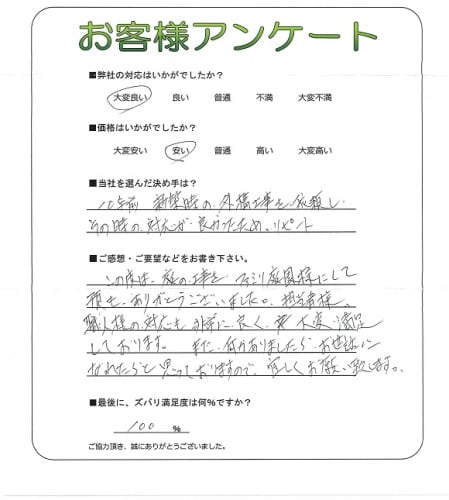 お客様アンケート
■弊社の対応はいかがでしたか?
大変良い 良い 普通 不満 大変不満
■価格はいかがでしたか?
大変安い 安い 普通 高い 大変高い
■当社を選んだ決め手は?
10年前 新築時の外構工事を依頼し
その時の対応が良かったため、リピート
■ご感想・ご要望などをお書き下さい。
この度は、庭の工事を ファミリ庭園様にして
頂き、ありがとうございました。担当者様、
職人様の対応も非常に良く、 大変満足
しております。 また、何かありましたら お世話に
なれたらと思っておりますので、宜しくお願い致します。
■最後に、ズバリ満足度は何%ですか?
100 %
ご協力頂き、誠にありがとうございました。